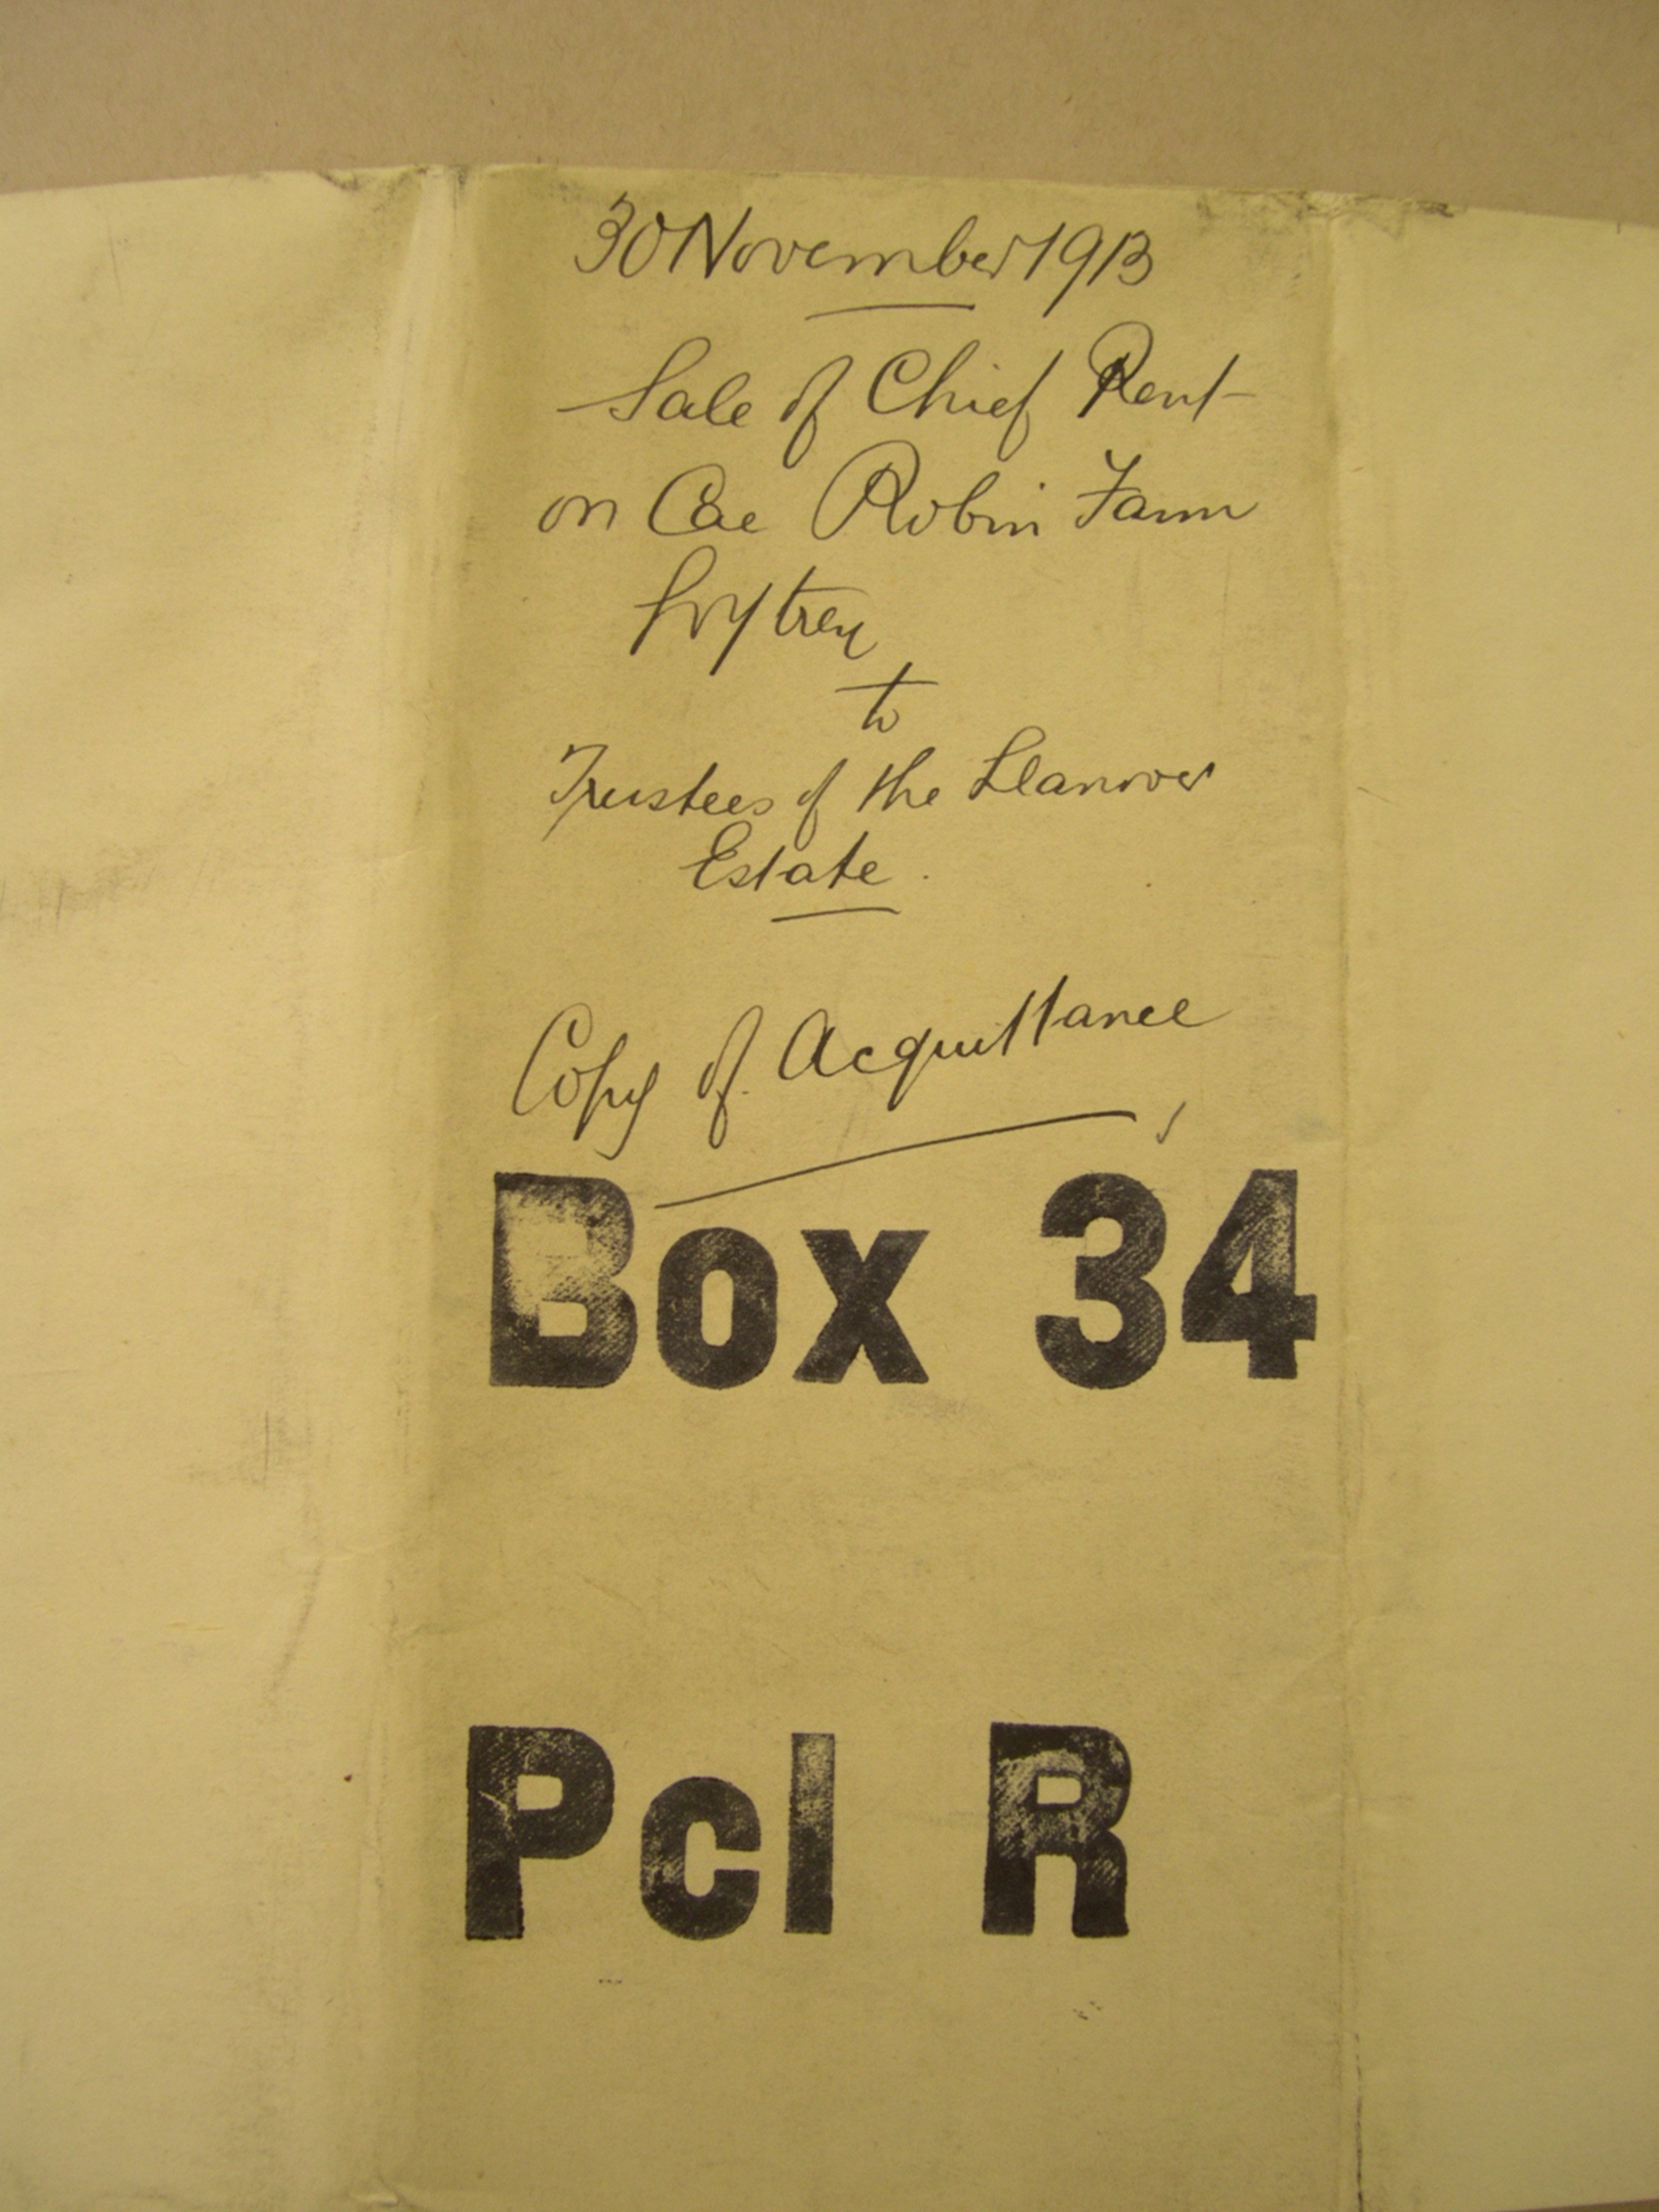 30 November 1913
Sale of Chief Rent
on Cae Robin Farm
Goytrey
to
Trustees of the Llanover
Estate.
Copy of Acquittance
Box 34
Pcl R